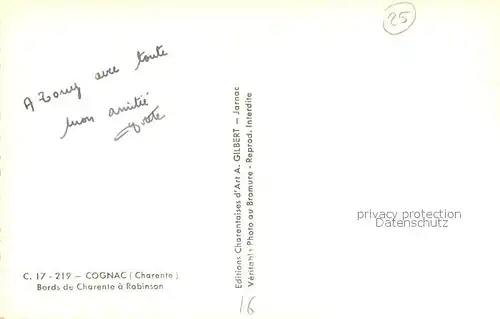 25
A Zouzy avec toute
mon amitié
Yvette
Editions Charentaises d'Art A. GILBERT — Jarnac
Véritable Photo au Bromure - Reprod. Interdite
privacy protection
www.ansichtskartenversand.com
C. 17 - 219 — COGNAC (Charente)
Bords de Charente à Robinson
16